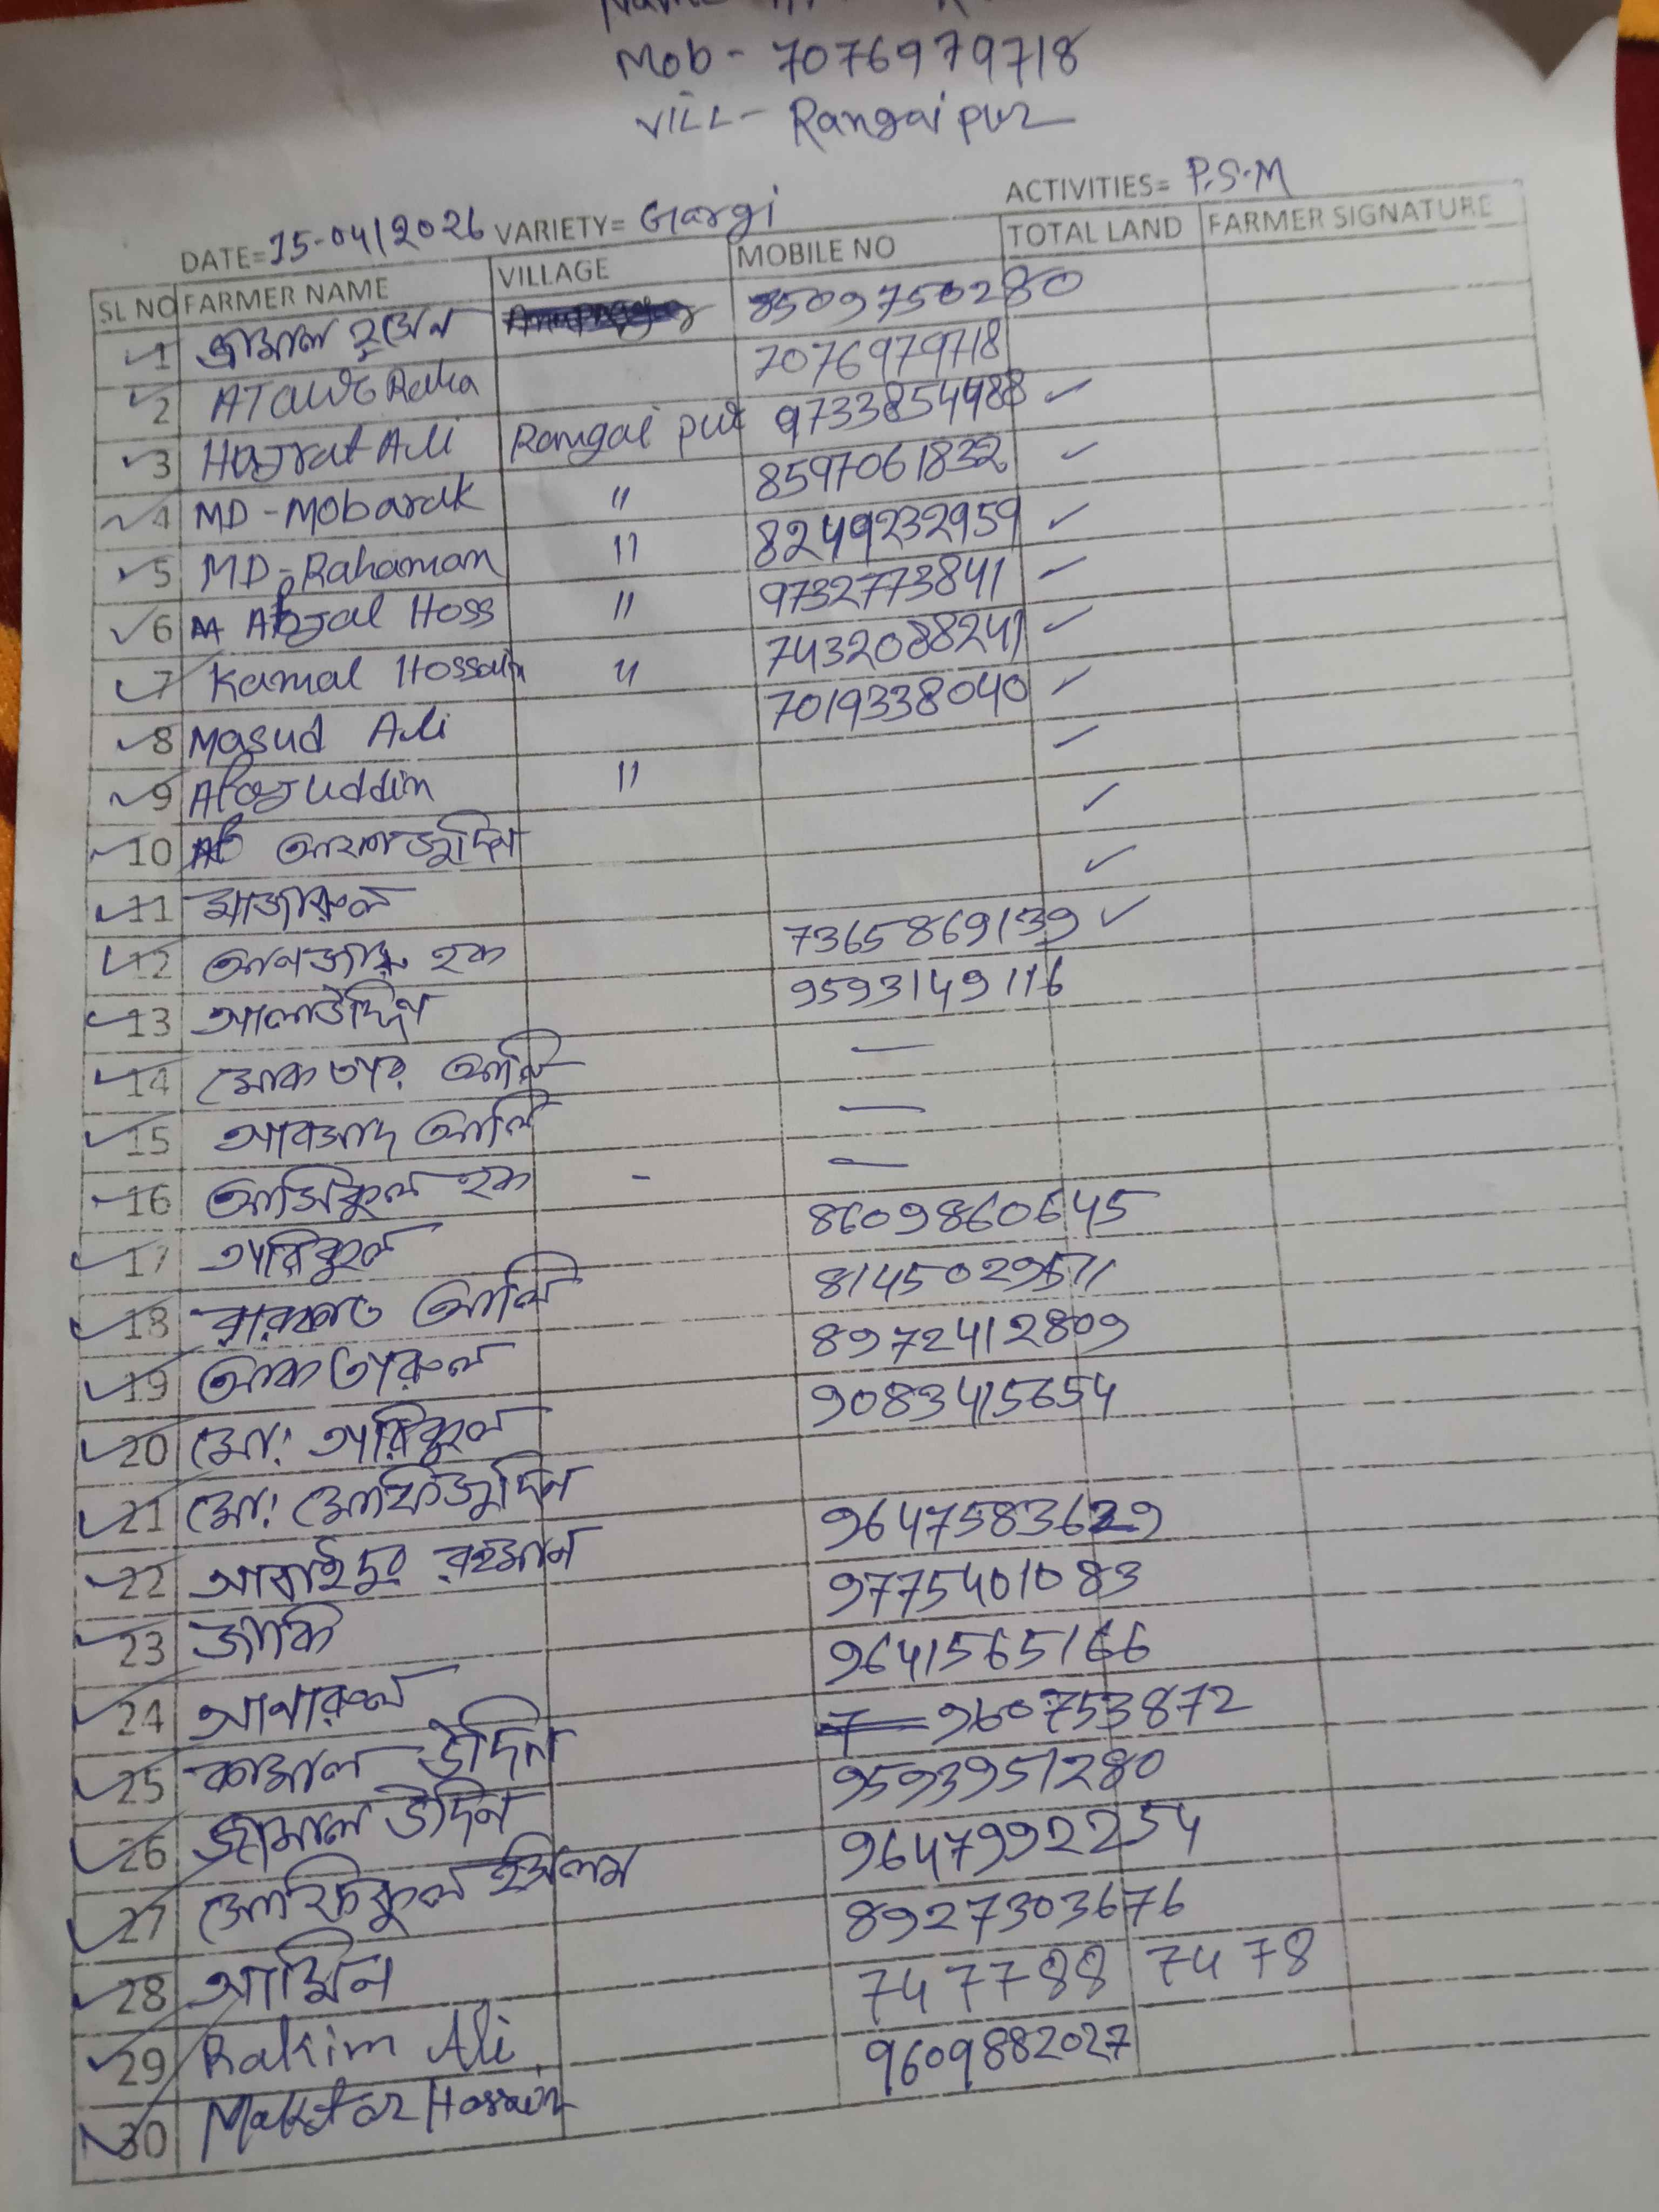 Mob - 7076979718
VILL - Rangaipur
ACTIVITIES= P.S.M
DATE=15-04/2026 VARIETY= Gargi
SL NO FARMER NAME VILLAGE MOBILE NO TOTAL LAND FARMER SIGNATURE
1 জামাল হুসেন 8509750280
2 7076979718
3 Hazrat Ali Rangai pur 9733854988 ✓
4 MD - Mobarak " 8597061832 ✓
5 MD. Rahaman " 8249232959 ✓
6 Abzal Hoss " 9732773841 ✓
7 Kamal Hossain " 7432088241 ✓
8 Masud Ali 7019338040 ✓
9 " ✓
10 ✓
11 মাজারুল ✓
12 হক 7365869139 ✓
13 আলাউদ্দিন 9593149116
14 মোকতার আলি —
15 আরসাদ আলি —
16 আসিকুল হক - —
17 তারিকুল 8609860645
18 বারকাত আলি 8145029571
19 আকতারুল 8972412809
20 মো: তারিকুল 9083415654
21 মো: মোফিজুদ্দিন
22 রহমান 9647583629
23 জাকি 9775401083
24 আনারুল 9641565166
25 কামাল উদ্দিন 9607753872
26 জামাল উদ্দিন 9593951280
27 ইসলাম 9647992254
28 আমিন 8927303676
29 Rakim Ali 7477887478
30 Maktar Hossain 9609882027